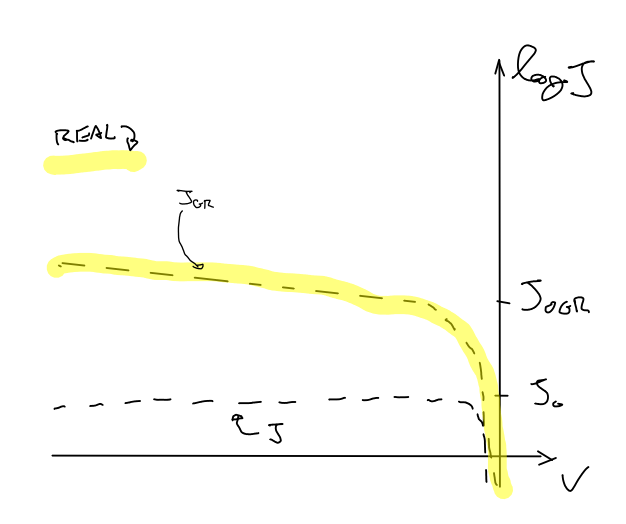 log J
REAL
J_GR
J_0GR
J_0
J
V